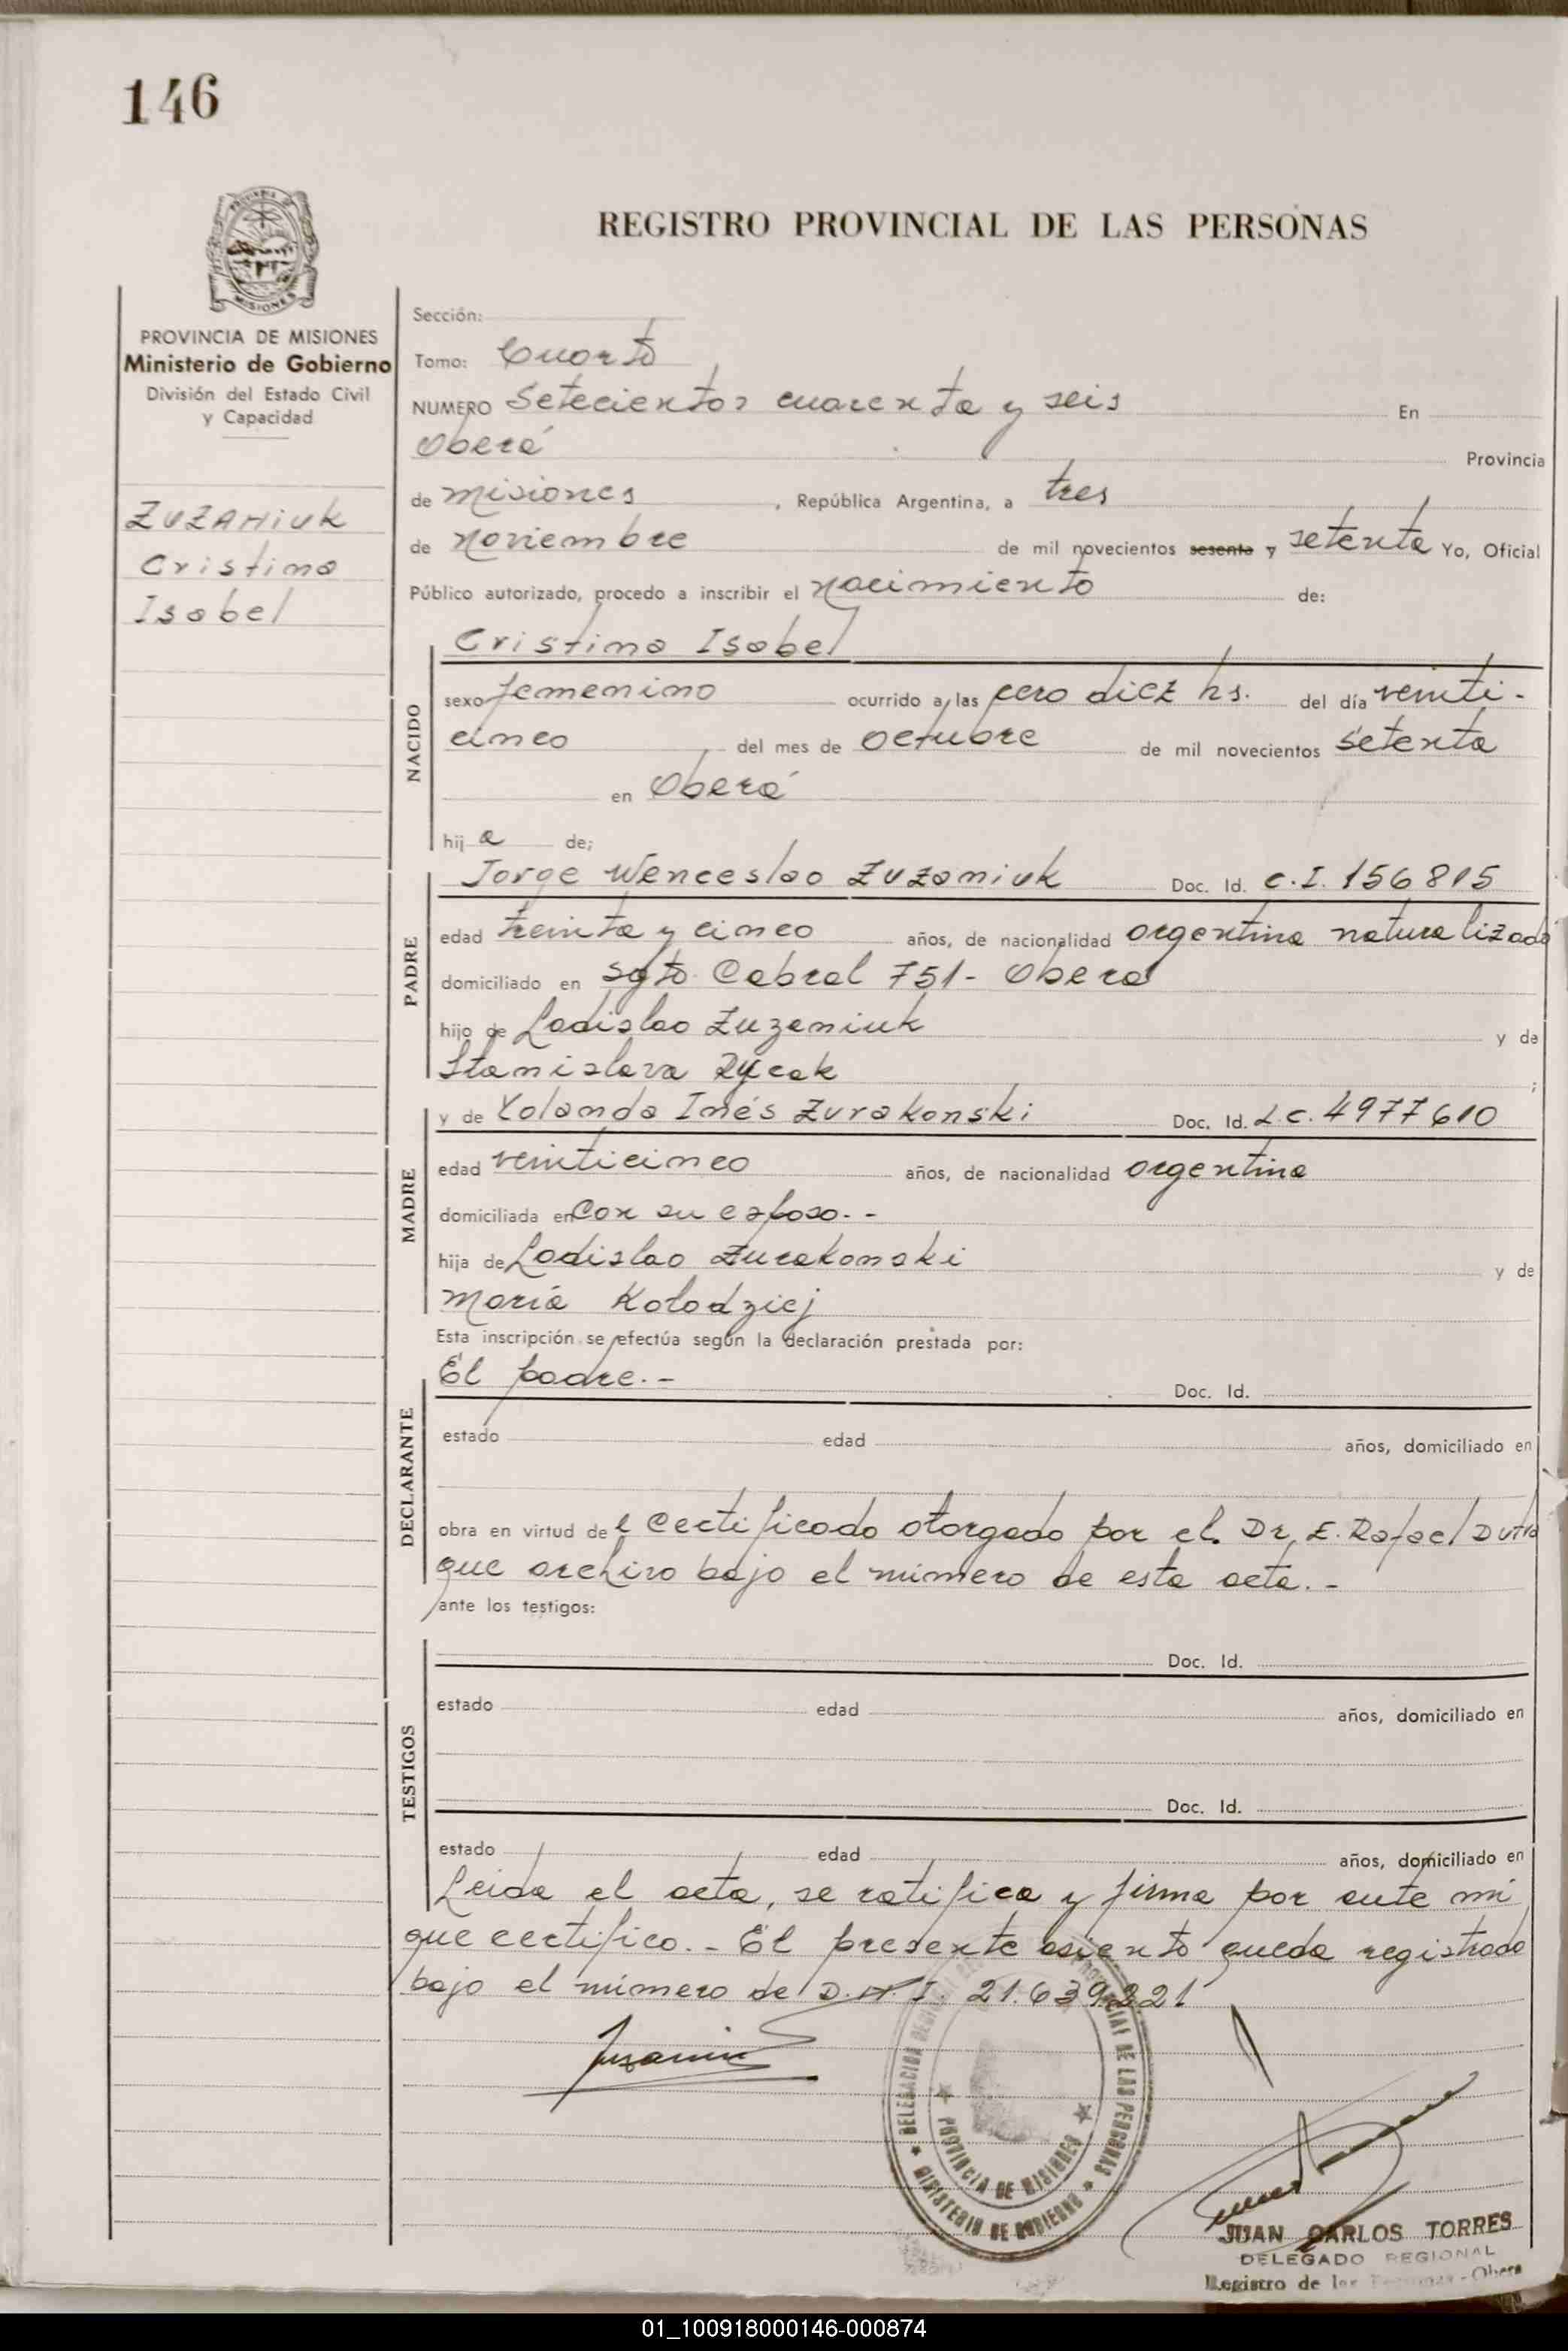 146
PROVINCIA DE MISIONES
Ministerio de Gobierno
División del Estado Civil
y Capacidad
ZUZANIUK
Cristina
Isabel
REGISTRO PROVINCIAL DE LAS PERSONAS
Sección:
Tomo: Cuarto
NUMERO Setecientos cuarenta y seis En
Oberá Provincia
de Misiones, República Argentina, a tres
de Noviembre de mil novecientos sesenta y setenta Yo, Oficial
Público autorizado, procedo a inscribir el nacimiento de:
NACIDO
Cristina Isabel
sexo femenino ocurrido a las cero diez hs. del día veinti-
cinco del mes de octubre de mil novecientos setenta
en Oberá
hij a de;
PADRE
Jorge Wenceslao Zuzaniuk Doc. Id. C.I. 156815
edad treinta y cinco años, de nacionalidad argentina naturalizado
domiciliado en Sgto. Cabral 751- Oberá
hijo de Ladislao Zuzaniuk y de
Stanislava Rycak;
MADRE
y de Yolanda Inés Zurakonski Doc. Id. L.C. 4977610
edad veinticinco años, de nacionalidad argentina
domiciliada en Con su esposo.-
hija de Ladislao Zurakonski y de
María Kolodziej
Esta inscripción se efectúa según la declaración prestada por:
DECLARANTE
El padre.- Doc. Id.
estado edad años, domiciliado en
obra en virtud de l Certificado otorgado por el Dr. E. Rafael Dutra
que archivo bajo el número de esta acta.-
ante los testigos:
TESTIGOS
Doc. Id.
estado edad años, domiciliado en
Doc. Id.
estado edad años, domiciliado en
Leída el acta, se ratifica y firma por ante mí
que certifico.- El presente asiento queda registrado
bajo el número de D.N.I. 21.639.221
PROVINCIA DE MISIONES
MINISTERIO DE GOBIERNO
JUAN CARLOS TORRES
DELEGADO REGIONAL
Registro de las Personas - Oberá
01_100918000146-000874